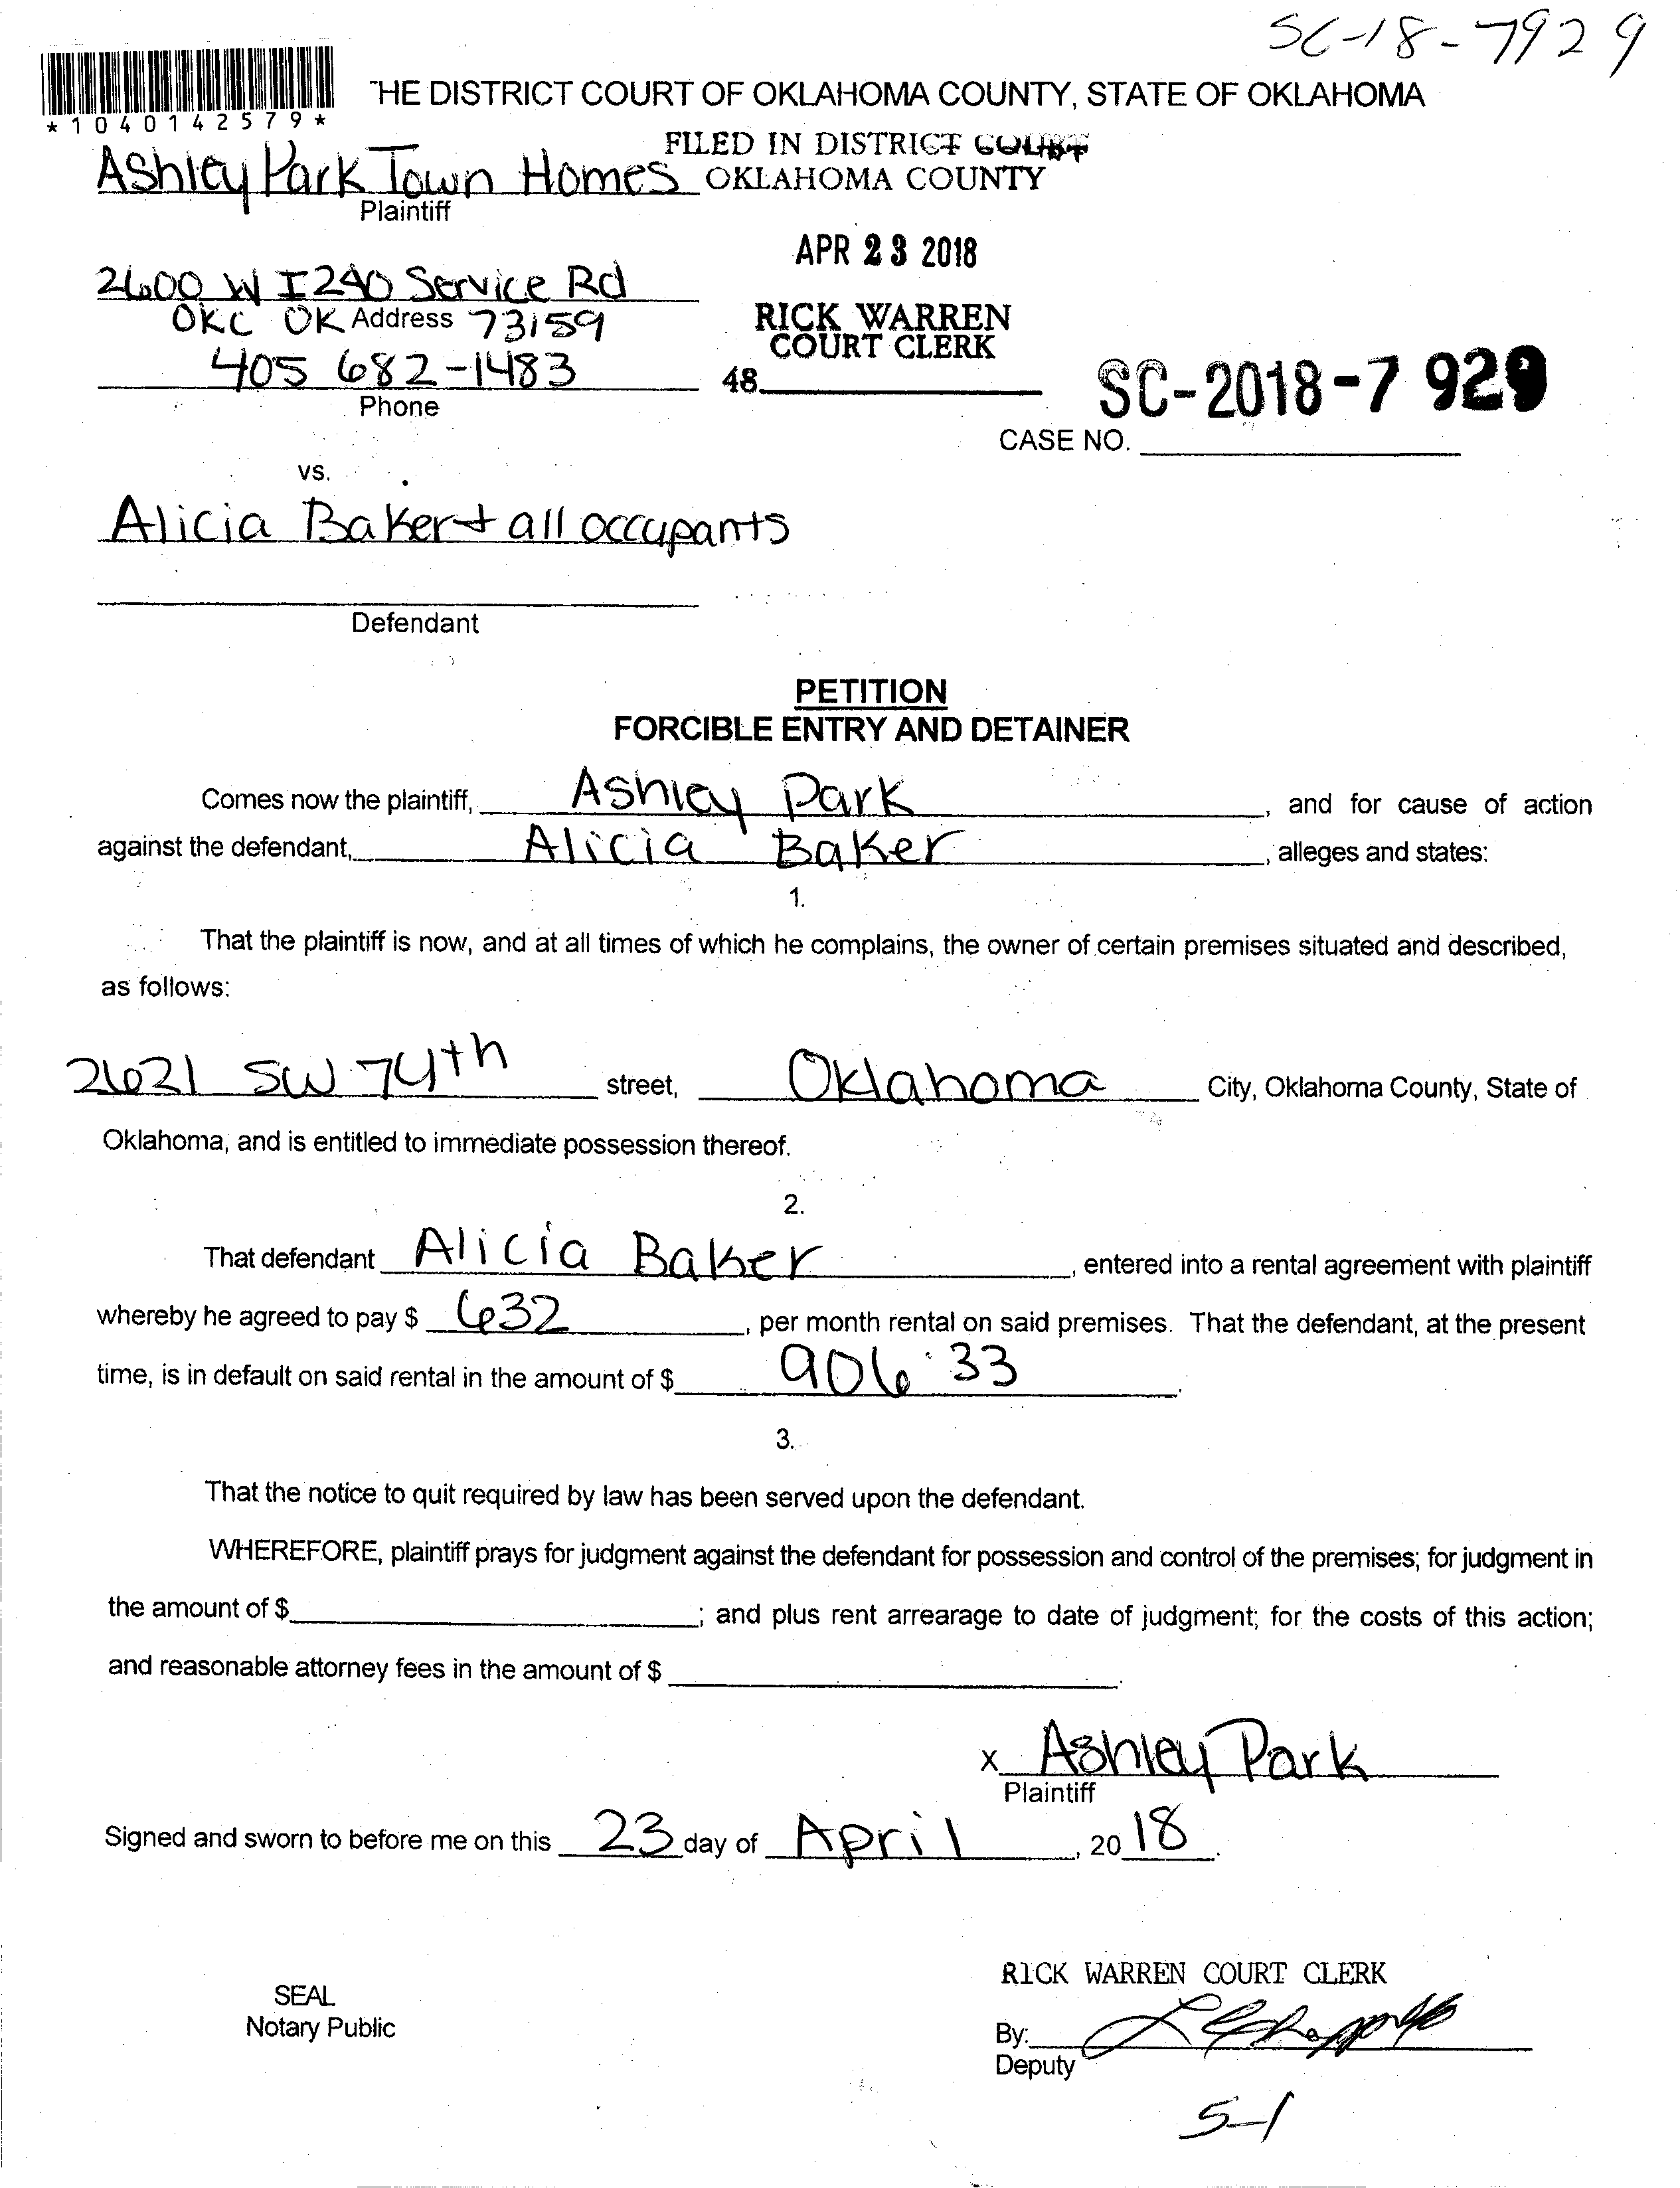 SC-18-7929
THE DISTRICT COURT OF OKLAHOMA COUNTY, STATE OF OKLAHOMA
*1040142579*
FILED IN DISTRICT COURT
Ashley Park Town Homes OKLAHOMA COUNTY
Plaintiff
APR 23 2018
2600 W I240 Service Rd
OKC OK Address 73159
RICK WARREN
COURT CLERK
405 682-1483
48
Phone
SC-2018-7929
CASE NO.
vs.
Alicia Baker + all occupants
Defendant
PETITION
FORCIBLE ENTRY AND DETAINER
Comes now the plaintiff, Ashley Park, and for cause of action
against the defendant, Alicia Baker, alleges and states:
1.
That the plaintiff is now, and at all times of which he complains, the owner of certain premises situated and described,
as follows:
2621 SW 74th street, Oklahoma City, Oklahoma County, State of
Oklahoma, and is entitled to immediate possession thereof.
2.
That defendant Alicia Baker, entered into a rental agreement with plaintiff
whereby he agreed to pay $ 632, per month rental on said premises. That the defendant, at the present
time, is in default on said rental in the amount of $ 906.33.
3.
That the notice to quit required by law has been served upon the defendant.
WHEREFORE, plaintiff prays for judgment against the defendant for possession and control of the premises; for judgment in
the amount of $ ; and plus rent arrearage to date of judgment; for the costs of this action;
and reasonable attorney fees in the amount of $ .
X Ashley Park
Plaintiff
Signed and sworn to before me on this 23 day of April, 2018.
RICK WARREN COURT CLERK
SEAL
Notary Public
By:
Deputy
5-1